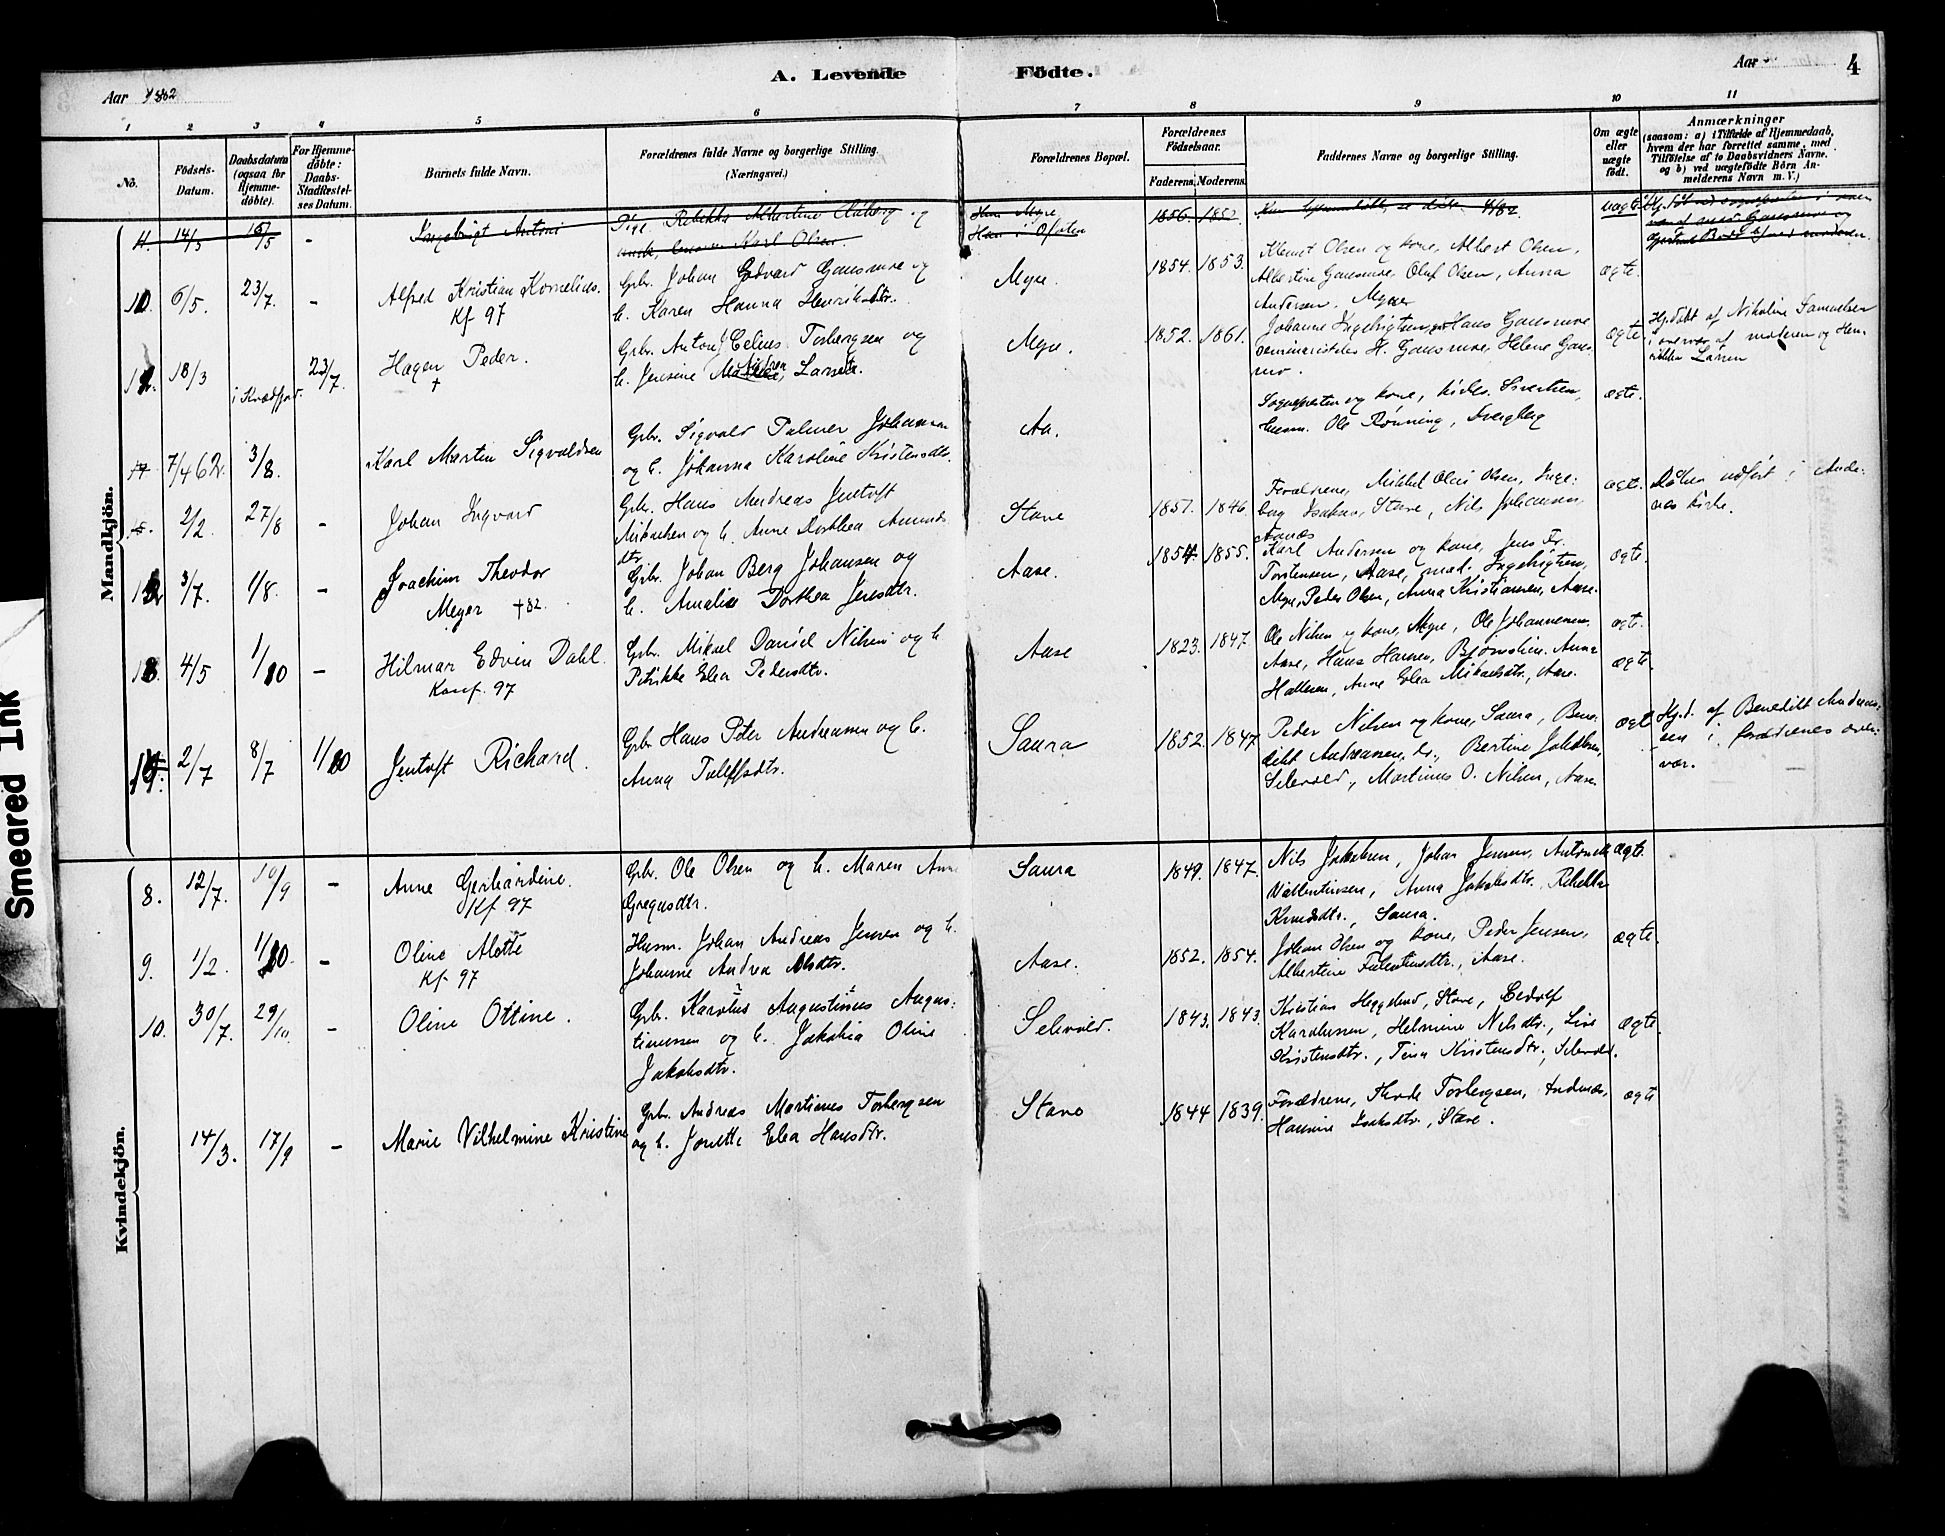 A. Levende Fødte.
Aar 1882
Aar 4
1 2 3 4 5 6 7 8 9 10 11
No.
Födsels-
Datum.
Daabsdatum
(ogsaa for
Hjemme-
döbte).
For Hjemme-
döbte:
Daabs-
Stadfæstel-
ses Datum.
Barnets fulde Navn.
Forældrenes fulde Navne og borgerlige Stilling.
(Næringsvei.)
Forældrenes Bopæl.
Forældrenes
Födselsaar.
Faderens. Moderens.
Faddernes Navne og borgerlige Stilling.
Om ægte
eller
uægte
födt.
Anmærkninger
(saasom: a) i Tilfælde af Hjemmedaab,
hvem der har forrettet samme, med
Tilföielse af to Daabsvidners Navne.
og b) ved uægtefödte Börn An-
melderens Navn m. V.)
Mandkjön.
11. 14/5 - Ingebrigt Antoni
Pige Rebekka Albertine og
Karl Olsen.
Hun Myre,
Han i Ofoten
1856. 1852.
uægte
10. 6/5. 23/7. - Alfred Kristian Kornelius.
Kf 97
Grb. Johan Edvard Gausmoe og
h. Karen Hanna Henriksdtr.
Myre. 1854. 1853.
Klemet Olsen og kone, Albert Olsen,
Albertine Gausmoe, Oluf Olsen, Anna
Andersen. Myre
ægte.
18/3 i Kvædfjord. 23/7. Hagen Peder.
+
Grb. Anton Celius Torbergsen og
h. Jensine Larsdtr.
Myre. 1852. 1861.
Johanne Ingebrigtsen, Hans Gausmoe
seminaristelev H. Gausmoe, Helene Gaus-
mo.
ægte
Hj.döbt af Nikoline Samuelsen
i overvær af moderen og Hen-
rikke Larsen
7/4 62. 3/8. Karl Martin Sigvaldsen
Grb. Sigvald Palmer Johansen
og h. Johanna Karoline Kristensdtr.
Aa.
Sognepresten og kone, kirkes. Sivertsen,
Husm. Ole Rönning,
ægte.
2/2 27/8 - Johan Ingvard
Grb. Hans Andreas Jentoft
Mikalsen og h. Anne Dorthea Amunds-
dtr.
Stave 1851. 1846
Forældrene, Mikkel Olai Olsen, Inge-
borg Isaksen, Stave, Nils Johansen,
ægte.
Daaben udført i Ande-
nes kirke.
3/7. 1/8. - Joachim Theodor
Meyer +82.
Grb. Johan Berg Johansen og
h. Amalie Dorthea Jensdtr.
Aase. 1854. 1855.
Karl Andersen og kone, Jens Fr.
Torstensen, Aase, Ingebrigtsen,
Myre, Peder Olsen, Anna Kristiansen, Aase.
ægte.
4/5 1/10 - Hilmar Edvin Dahl.
Konf. 97
Grb. Mikal Daniel Nilsen og h.
Petrikke Elea Pedersdtr.
Aase 1823. 1847.
Ole Nilsen og kone, Myre, Ole Johannesen,
Aase, Hans Hansen, Bjørnskin. Anna
Halsen, Anne Elea Mikalsdtr., Aase.
ægte.
ægte.
2/7 8/7 1/10 Jentoft Richard.
Grb Hans Peter Andreassen og h.
Anna Tollefsdtr.
Saura 1852. 1847
Peder Nilsen og kone, Saura, Bene-
dikt Andreassen, do., Bertine Jakobsen,
Selevold, Martinus O. Nilsen, Aase.
ægte
Hj.d. af Benedikt Andreas-
sen i forældrenes over-
vær.
Kvindekjön.
8. 12/7. 10/9 - Anne Gerhardine.
Kf 97
Grb. Ole Olsen og h. Maren Anne
Gregusdtr.
Saura 1849. 1847.
Nils Jakobsen, Johan Jensen, Antonette
Vallentinsen, Anna Jakobsdtr. Rebekka
Knudsdtr., Saura.
ægte.
9. 1/2. 1/10. - Oline Alette
Kf. 97
Husm. Johan Andreas Jensen og h.
Johanne Andrea Olsdtr.
Aase. 1852. 1854.
Johan Olsen og kone, Peder Jensen,
Albertine Falentinsdtr., Aase.
ægte.
10. 30/7. 29/10. - Oline Ottine.
Grb. Karolus Augustinus Augus-
tinussen og h. Jakobia Oline
Jakobsdtr.
Selevold. 1843. 1843.
Kristian Heggelund, Stave, Cedolf
Karolussen, Helmine Nilsdtr., Lise
Kristensdtr., Tina Kristensdtr., Selevold.
ægte.
14/3. 17/9 - Marie Vilhelmine Kristine
Grb. Andreas Martinus Torbergsen
og h. Jonette Elea Hansdtr.
Stave 1844 1839.
Forældrene, Thode Torbergsen, Andenæs,
Hansine Isaksdtr., Stave.
ægte
Smeared Ink